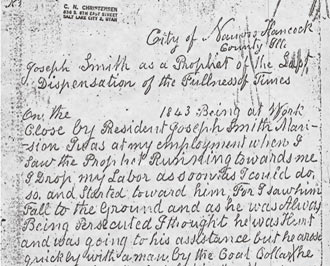 C. N. CHRISTENSEN
SALT LAKE CITY 5, UTAH
City of Nauvoo Hancock
County Ill
Joseph Smith as a Prophet of the Last
Dispensation of the Fullness of Times
On the 1843 Being at Work
Close by Resident Joseph Smith Man-
sion I was at my employment when I
Saw the Prophet Running towards me
I Drop my Labor as soon as I could do
so, and Started toward him. For I saw him
Fall to the Ground and as he was Always
Being Persecuted I thought he was Hurt
and was going to his assistance but he arose
quickly with a man by the Coat Collar he